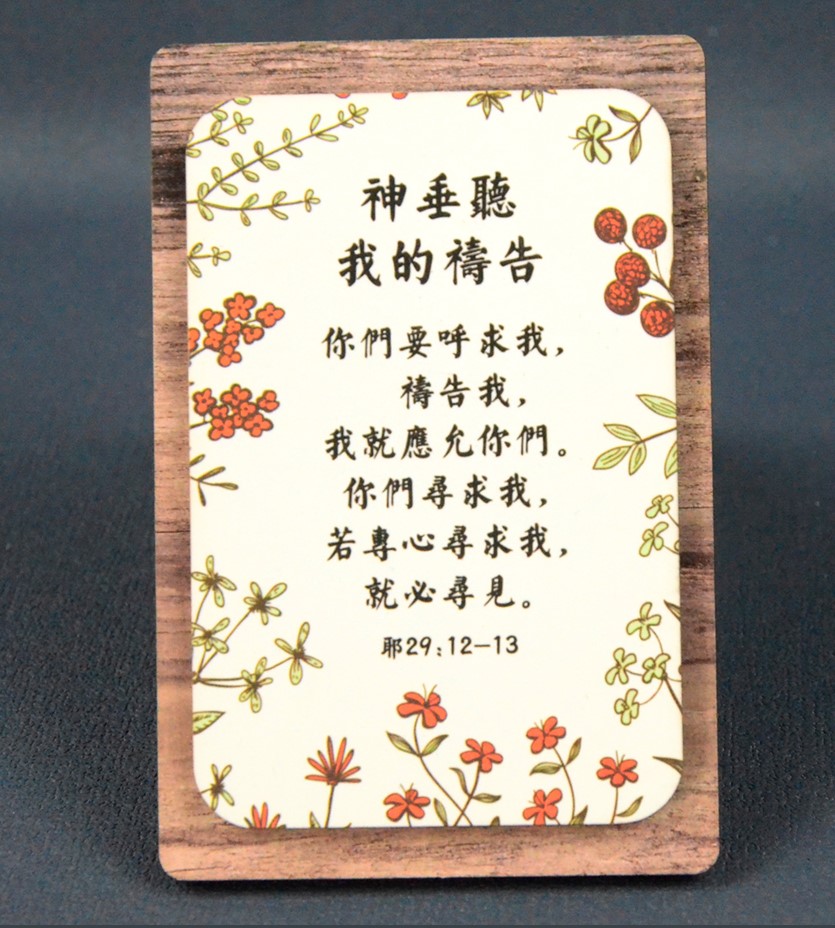 神垂聽
我的禱告
你們要呼求我，
禱告我，
我就應允你們。
你們尋求我，
若專心尋求我，
就必尋見。
耶29:12-13